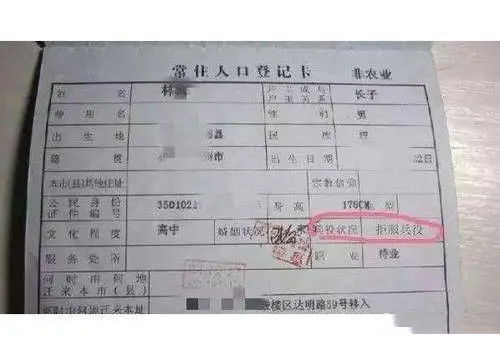 常住人口登记卡 非农业
姓名 林 户主或与户主关系 长子
曾用名 性别 男
出生地 县 民族
籍贯 州市 出生日期 22日
本市(县)其他住址 宗教信仰
公民身份证件编号 3501021 身高 176CM
文化程度 高中 婚姻状况 兵役状况 拒服兵役
服务处所 职业 待业
何时由何地迁来本市(县)
楼区达明路59号移入